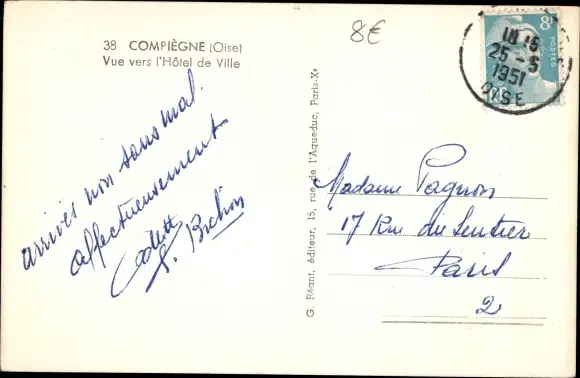 38 COMPIÈGNE (Oise)
Vue vers l'Hôtel de Ville
8€
8F
POSTES
25 - 5
1951
OISE
arrivés non sans mal.
affectueusement
Odette
G. Réant, éditeur, 15, rue de l'Aqueduc, Paris-Xe
Madame Pagnon
17 Rue du Sentier
Paris
2